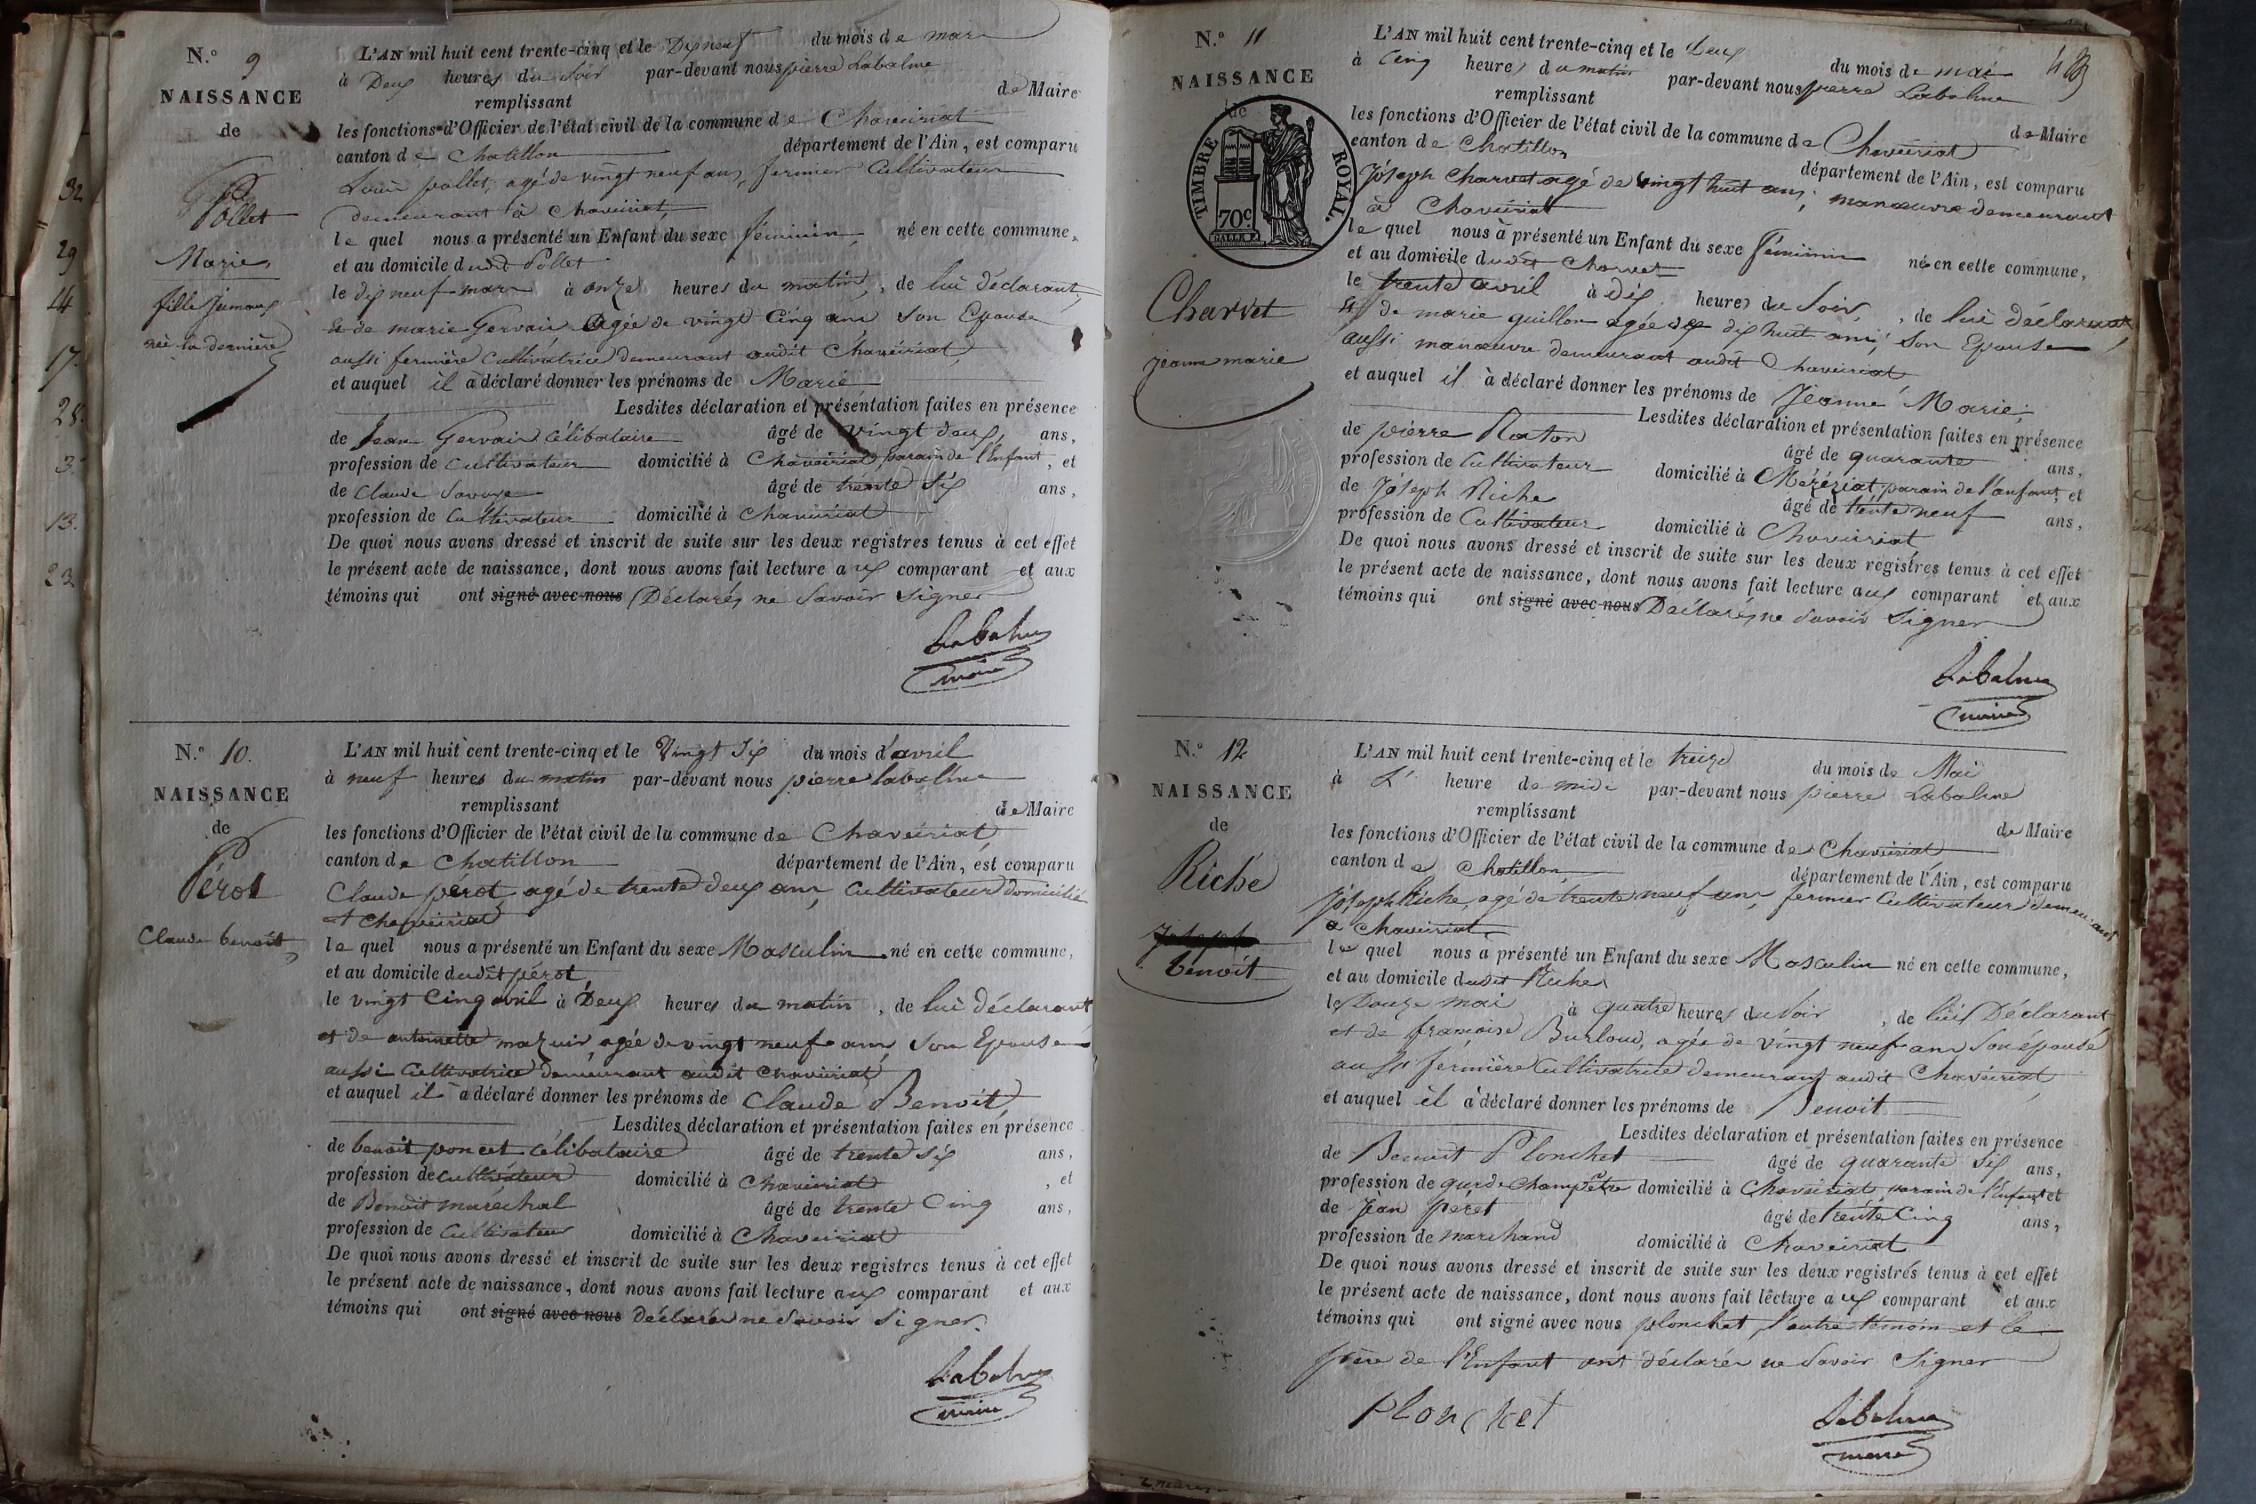 32
29
14
17.
28.
3.
13.
23
N.º 9
NAISSANCE
de
Pollet
Marie
fille Jumous
née la dernière
L'AN mil huit cent trente-cinq et le Dix neuf du mois de mars
à Deux heures du Soir par-devant nous pierre Labalme
remplissant de Maire
les fonctions d'Officier de l'état civil de la commune de Chaveiriat
canton de Chatillon département de l'Ain, est comparu
Louis pollet, agé de vingt neuf ans, fermier Cultivateur
demeurant à Chaveiriat,
le quel nous a présenté un Enfant du sexe féminin, né en cette commune,
et au domicile dudit Pollet
le dix neuf mars à onze heures du matin, de lui déclarant,
et de marie Gervais agée de vingt Cinq ans Son Epouse
aussi fermière Cultivatrice demeurant audit Chaveiriat,
et auquel il a déclaré donner les prénoms de Marie
Lesdites déclaration et présentation faites en présence
de Jean Gervais Célibataire âgé de vingt deux ans,
profession de Cultivateur domicilié à Chaveiriat parain de l'Enfant, et
de Claude Savoye âgé de trente Six ans,
profession de Cultivateur domicilié à Chaveiriat
De quoi nous avons dressé et inscrit de suite sur les deux registres tenus à cet effet
le présent acte de naissance, dont nous avons fait lecture aux comparant et aux
témoins qui ont signé avec nous Déclarés ne Savoir Signer
Labalme
maire
N.º 10.
NAISSANCE
de
Pérot
Claude benoît
L'AN mil huit cent trente-cinq et le Vingt Six du mois d'avril
à neuf heures du matin par-devant nous pierre labalme
remplissant de Maire
les fonctions d'Officier de l'état civil de la commune de Chaveiriat
canton de Chatillon département de l'Ain, est comparu
Claude pérot, agé de trente deux ans, Cultivateur domicilié
à Chaveiriat
le quel nous a présenté un Enfant du sexe Masculin né en cette commune,
et au domicile dudit pérot,
le vingt Cinq avril à Deux heures du matin, de lui déclarant
et de antoinette mazuir, agée de vingt neuf ans, Son Epouse
aussi Cultivatrice demeurant audit Chaveiriat,
et auquel il a déclaré donner les prénoms de Claude Benoit,
Lesdites déclaration et présentation faites en présence
de benoit poncet Célibataire âgé de trente Six ans,
profession de Cultivateur domicilié à Chaveiriat, et
de Benoit maréchal âgé de trente Cinq ans,
profession de Cultivateur domicilié à Chaveiriat
De quoi nous avons dressé et inscrit de suite sur les deux registres tenus à cet effet
le présent acte de naissance, dont nous avons fait lecture aux comparant et aux
témoins qui ont signé avec nous Déclarés ne Savoir Signer.
Labalme
maire
N.º 11
NAISSANCE
de
TIMBRE ROYAL.
70c
Charvet
jeanne marie
L'AN mil huit cent trente-cinq et le Deux du mois de mai
à Cinq heures du matin par-devant nous pierre Labalme
remplissant de Maire
les fonctions d'Officier de l'état civil de la commune de Chaveiriat
canton de Chatillon département de l'Ain, est comparu
Joseph Charvet agé de vingt huit ans, manœuvre demeurant
à Chaveiriat
le quel nous à présenté un Enfant du sexe féminin né en cette commune,
et au domicile dudit Charvet
le trente avril à dix heures du Soir, de lui déclarant
et de marie guillon agée de dix huit ans, Son Epouse
aussi manœuvre demeurant audit Chaveiriat
et auquel il à déclaré donner les prénoms de Jeanne Marie,
Lesdites déclaration et présentation faites en présence
de pierre Raton âgé de quarante ans,
profession de Cultivateur domicilié à Mézériat, parain de l'enfant, et
de Joseph Riche âgé de trente neuf ans,
profession de Cultivateur domicilié à Chaveiriat
De quoi nous avons dressé et inscrit de suite sur les deux registres tenus à cet effet
le présent acte de naissance, dont nous avons fait lecture aux comparant et aux
témoins qui ont signé avec nous Déclarés ne Savoir Signer
Labalme
maire
N.º 12
NAISSANCE
de
Riché
Joseph
benoit
L'AN mil huit cent trente-cinq et le treize du mois de Mai
à L' heure de midi par-devant nous pierre Labalme
remplissant de Maire
les fonctions d'Officier de l'état civil de la commune de Chaveiriat
canton de Chatillon département de l'Ain, est comparu
Joseph Riche, agé de trente neuf ans, fermier Cultivateur demeurant
à Chaveiriat,
le quel nous a présenté un Enfant du sexe Masculin né en cette commune,
et au domicile dudit Riche
le Douze mai à quatre heures du Soir, de lui Déclarant
et de françoise Burloud, agée de vingt neuf ans Son épouse
aussi fermière Cultivatrice demeurant audit Chaveiriat
et auquel il à déclaré donner les prénoms de Benoit
Lesdites déclaration et présentation faites en présence
de Benoit Plonchet âgé de quarante Six ans,
profession de garde Champêtre domicilié à Chaveiriat, parain de l'Enfant et
de Jean péret âgé de trente Cinq ans,
profession de marchand domicilié à Chaveiriat
De quoi nous avons dressé et inscrit de suite sur les deux registres tenus à cet effet
le présent acte de naissance, dont nous avons fait lecture aux comparant et aux
témoins qui ont signé avec nous plonchet, l'autre témoin et le
père de l'Enfant ont déclarés ne Savoir Signer
Plonchet
Labalme
maire